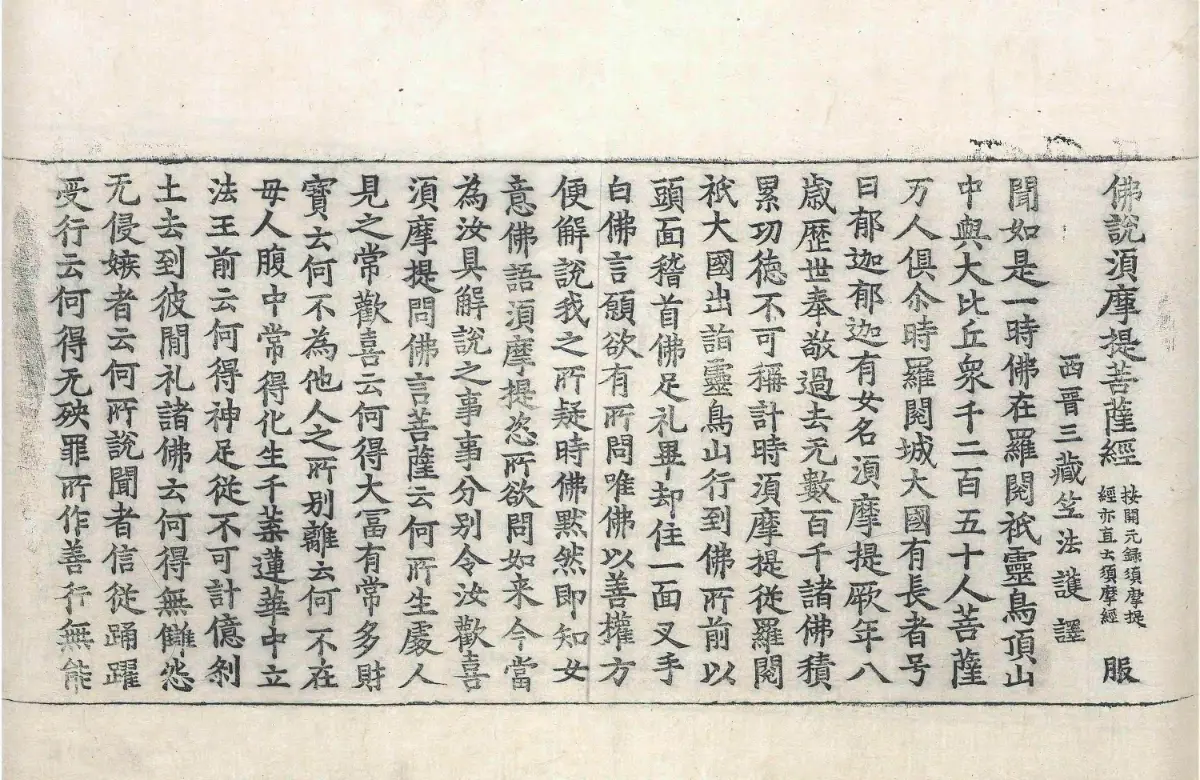 佛說湏摩提菩薩經 按開元錄湏摩提 經亦直云湏摩經 服
西晋三藏竺法護譯
聞如是一時佛在羅閱祇靈鳥頂山
中與大比丘衆千二百五十人菩薩
万人俱尒時羅閱城大國有長者号
曰郁迦郁迦有女名湏摩提厥年八
歲歷世奉敬過去无數百千諸佛積
累功德不可稱計時湏摩提從羅閱
祇大國出詣靈鳥山行到佛所前以
頭面稽首佛足礼畢却住一面叉手
白佛言願欲有所問唯佛以善權方
便解說我之所疑時佛默然即知女
意佛語湏摩提恣所欲問如来今當
為汝具解說之事事分別令汝歡喜
湏摩提問佛言菩薩云何所生處人
見之常歡喜云何得大冨有常多財
寶云何不為他人之所別離云何不在
母人腹中常得化生千葉蓮華中立
法王前云何得神足從不可計億剎
土去到彼閒礼諸佛云何得無讎怨
无侵嫉者云何所說聞者信從踊躍
受行云何得无殃罪所作善行無能